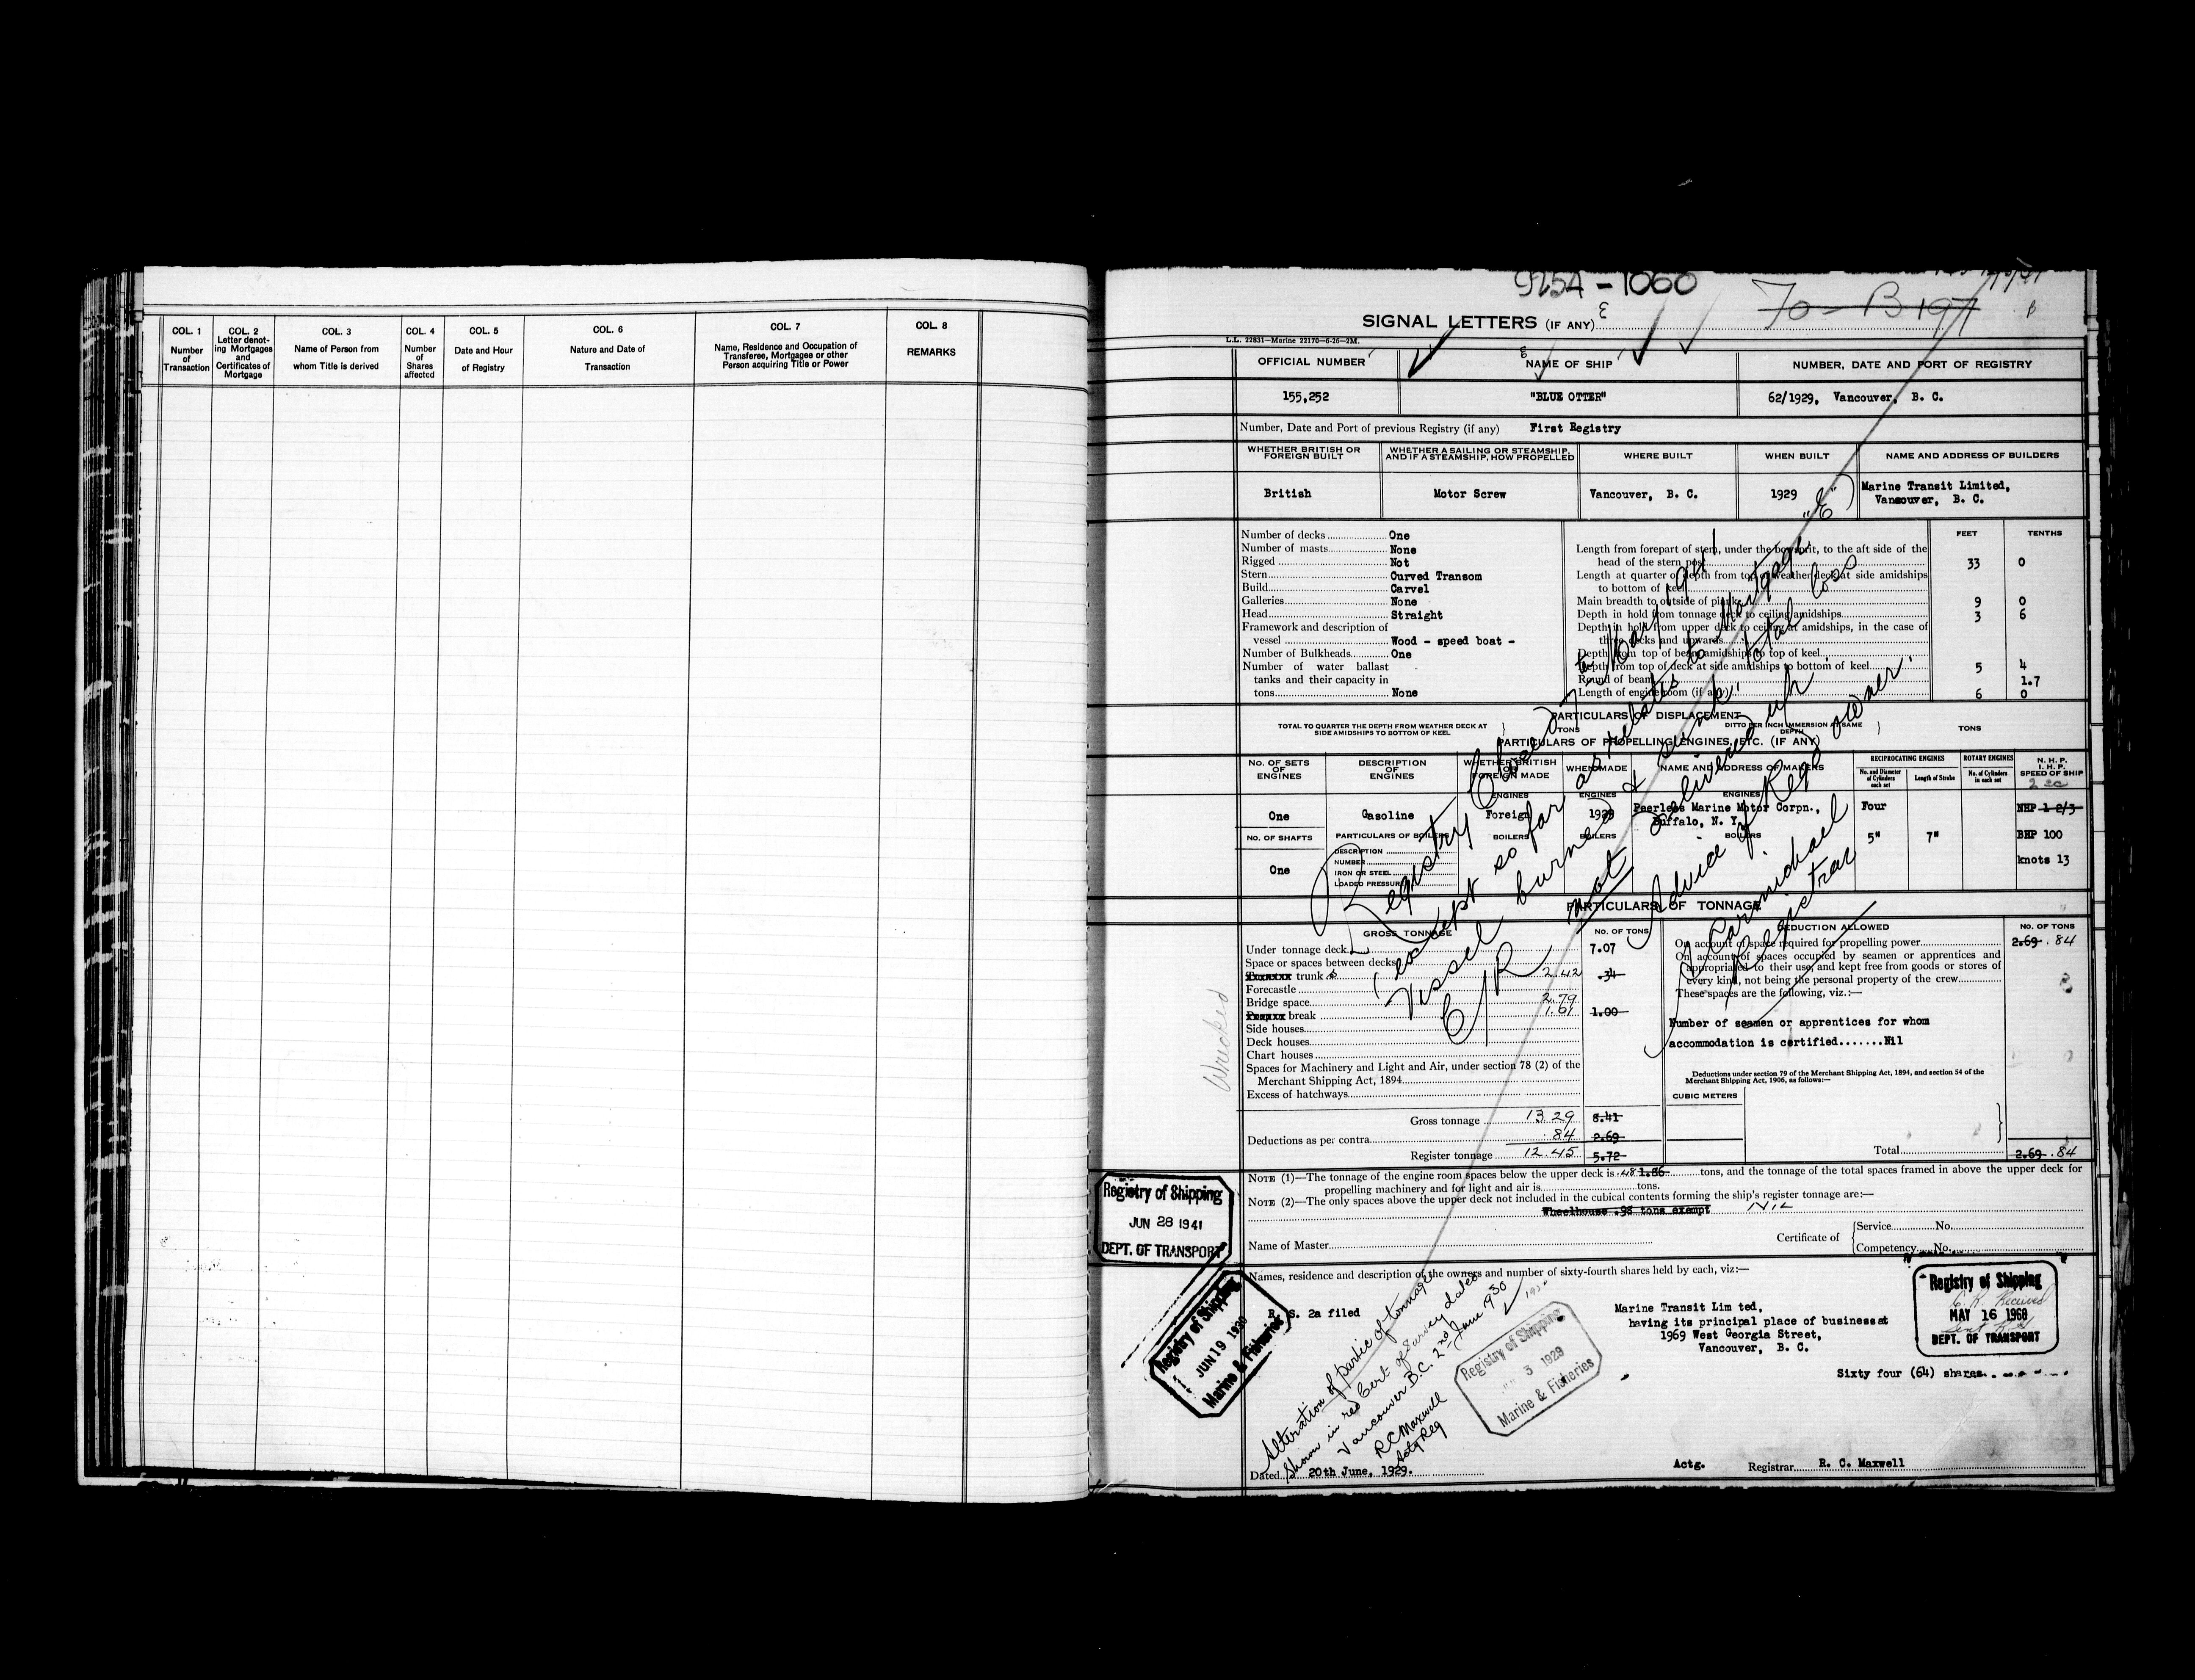 COL. 1
Number
of
Transaction
COL. 2
Letter denot-
ing Mortgages
and
Certificates of
Mortgage
COL. 3
Name of Person from
whom Title is derived
COL. 4
Number
of
Shares
affected
COL. 5
Date and Hour
of Registry
COL. 6
Nature and Date of
Transaction
COL. 7
Name, Residence and Occupation of
Transferee, Mortgagee or other
Person acquiring Title or Power
COL. 8
REMARKS
925A - 1060
70-B197
SIGNAL LETTERS (IF ANY)
L.L. 22831—Marine 22170—6-26—2M.
OFFICIAL NUMBER
NAME OF SHIP
NUMBER, DATE AND PORT OF REGISTRY
155,252
"BLUE OTTER"
62/1929, Vancouver, B. C.
Number, Date and Port of previous Registry (if any) First Registry
WHETHER BRITISH OR
FOREIGN BUILT
WHETHER A SAILING OR STEAMSHIP,
AND IF A STEAMSHIP, HOW PROPELLED
WHERE BUILT
WHEN BUILT
NAME AND ADDRESS OF BUILDERS
British
Motor Screw
Vancouver, B. C.
1929
Marine Transit Limited,
Vancouver, B. C.
Number of decks One
Number of masts None
Rigged Not
Stern Curved Transom
Build Carvel
Galleries None
Head Straight
Framework and description of
vessel Wood - speed boat -
Number of Bulkheads One
Number of water ballast
tanks and their capacity in
tons None
FEET TENTHS
Length from forepart of stem, under the bowsprit, to the aft side of the
head of the stern post 33 0
Length at quarter of depth from top of weather deck at side amidships
to bottom of keel
Main breadth to outside of plank 9 0
Depth in hold from tonnage deck to ceiling amidships 3 6
Depth in hold from upper deck to ceiling at amidships, in the case of
three decks and upwards
Depth from top of beam amidships to top of keel
Depth from top of deck at side amidships to bottom of keel 5 4
Round of beam 1.7
Length of engine room (if any) 6 0
PARTICULARS OF DISPLACEMENT
TOTAL TO QUARTER THE DEPTH FROM WEATHER DECK AT
SIDE AMIDSHIPS TO BOTTOM OF KEEL
TONS
DITTO PER INCH IMMERSION AT SAME
DEPTH
TONS
PARTICULARS OF PROPELLING ENGINES, ETC. (IF ANY)
NO. OF SETS
OF
ENGINES
DESCRIPTION
OF
ENGINES
WHETHER BRITISH
OR
FOREIGN MADE
WHEN MADE
NAME AND ADDRESS OF MAKERS
RECIPROCATING ENGINES
No. and Diameter
of Cylinders
each set
Length of Stroke
ROTARY ENGINES
No. of Cylinders
in each set
N. H. P.
I. H. P.
SPEED OF SHIP
ENGINES ENGINES ENGINES
One
Gasoline
Foreign
1929
Peerless Marine Motor Corpn.,
Buffalo, N. Y.
Four
NHP 1 2/3
NO. OF SHAFTS
PARTICULARS OF BOILERS
BOILERS BOILERS BOILERS
5" 7"
BHP 100
One
DESCRIPTION
NUMBER
IRON OR STEEL
LOADED PRESSURE
knots 13
Registry Closed
(except so far as relates to Mortgage "E")
Vessel burned & sunk, total loss
C/R not delivered up.
Advice of Regd owner.
Carmichael
Registrar
PARTICULARS OF TONNAGE
GROSS TONNAGE
NO. OF TONS
DEDUCTION ALLOWED
NO. OF TONS
Under tonnage deck 7.07
Space or spaces between decks
trunk s 2.42 .34
Forecastle
Bridge space 2.79
break 1.01 1.00
Side houses
Deck houses
Chart houses
Spaces for Machinery and Light and Air, under section 78 (2) of the
Merchant Shipping Act, 1894
Excess of hatchways
Gross tonnage 13.29 8.41
Deductions as per contra .84 2.69
Register tonnage 12.45 5.72
On account of space required for propelling power 2.69 .84
On account of spaces occupied by seamen or apprentices and
appropriated to their use, and kept free from goods or stores of
every kind, not being the personal property of the crew
These spaces are the following, viz.:—
Number of seamen or apprentices for whom
accommodation is certified.......Nil
Deductions under section 79 of the Merchant Shipping Act, 1894, and section 54 of the
Merchant Shipping Act, 1906, as follows:—
CUBIC METERS
Total 2.69 .84
Wrecked
NOTE (1)—The tonnage of the engine room spaces below the upper deck is .48 1.56 tons, and the tonnage of the total spaces framed in above the upper deck for
propelling machinery and for light and air is tons.
NOTE (2)—The only spaces above the upper deck not included in the cubical contents forming the ship's register tonnage are:—
Wheelhouse .98 tons exempt NIL
Name of Master
Certificate of
Service No.
Competency No.
Registry of Shipping
JUN 28 1941
DEPT. OF TRANSPORT
Names, residence and description of the owners and number of sixty-fourth shares held by each, viz:—
R. S. 2a filed
Registry of Shipping
JUN 19 1930
Marine & Fisheries
Alteration of partic of tonnage
shown in red Cert of Survey dated
Vancouver B.C. 2nd June 1930
R C Maxwell
Actg Reg
Registry of Shipping
3 1929
Marine & Fisheries
Marine Transit Lim ted,
having its principal place of business at
1969 West Georgia Street,
Vancouver, B. C.
Sixty four (64) shares
Registry of Shipping
C. R. Received
MAY 16 1960
DEPT. OF TRANSPORT
Dated 20th June, 1929.
Actg. Registrar R. C. Maxwell